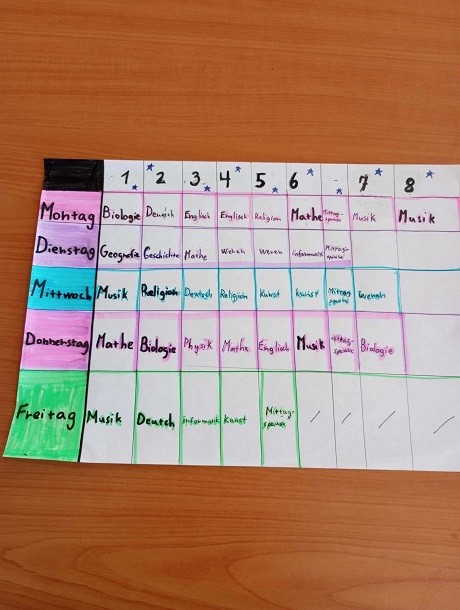 1 2 3 4 5 6 7 8
Montag Biologie Deutsch Englisch Englisch Religion Mathe Mittags- Musik Musik
pause
Dienstag Geografie Geschichte Mathe Werken Werken Informatik Mittags-
pause
Mittwoch Musik Religion Deutsch Religion Kunst Kunst Mittags-
pause
Donnerstag Mathe Biologie Physik Mathe Englisch Musik Mittags- Biologie
pause
Freitag Musik Deutch Informatik Kunst Mittag-
spause